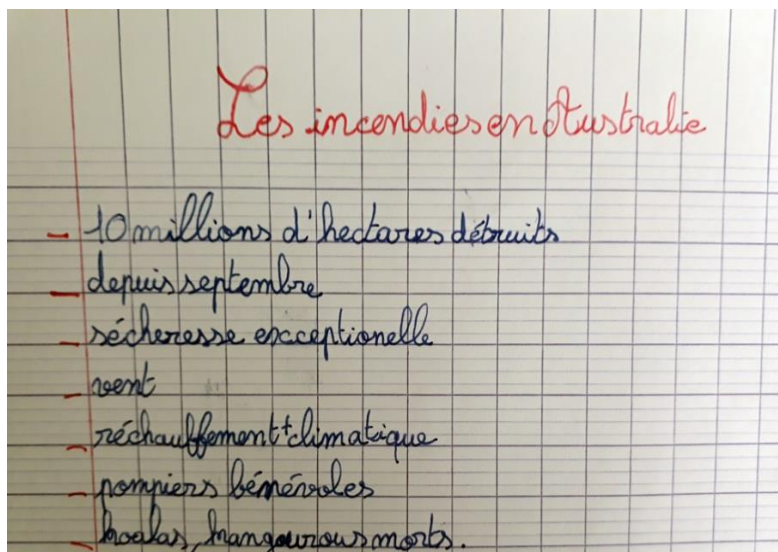 Les incendies en Australie
- 10 millions d'hectares détruits
- depuis septembre
- sécheresse excceptionelle
- vent
- réchauffement + climatique
- pompiers bénévoles
- koalas, kangourous morts.